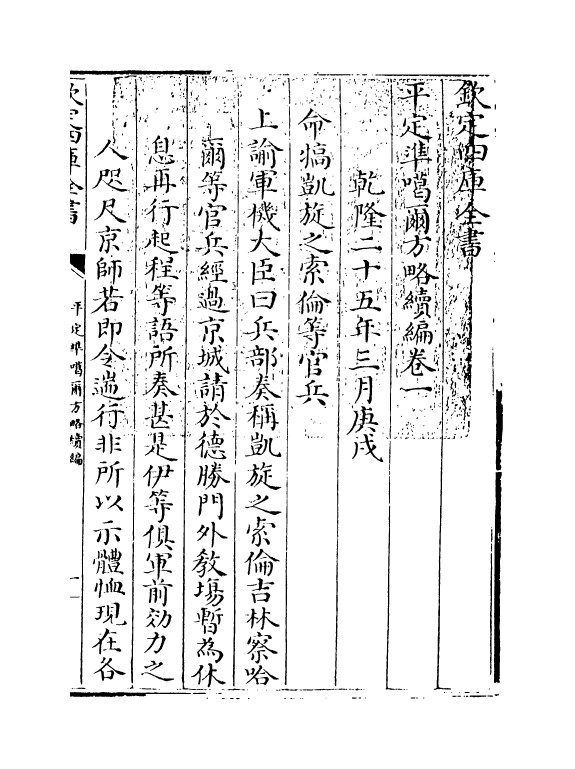 欽定四庫全書
平定準噶爾方略續編卷一
乾隆二十五年三月庚戌
命犒凱旋之索倫等官兵
上諭軍機大臣曰兵部奏稱凱旋之索倫吉林察哈
爾等官兵經過京城請於德勝門外教場暫為休
息再行起程等語所奏甚是伊等俱軍前効力之
人咫尺京師若即令遄行非所以示體恤現在各
欽定四庫全書
平定準噶爾方略續編
一